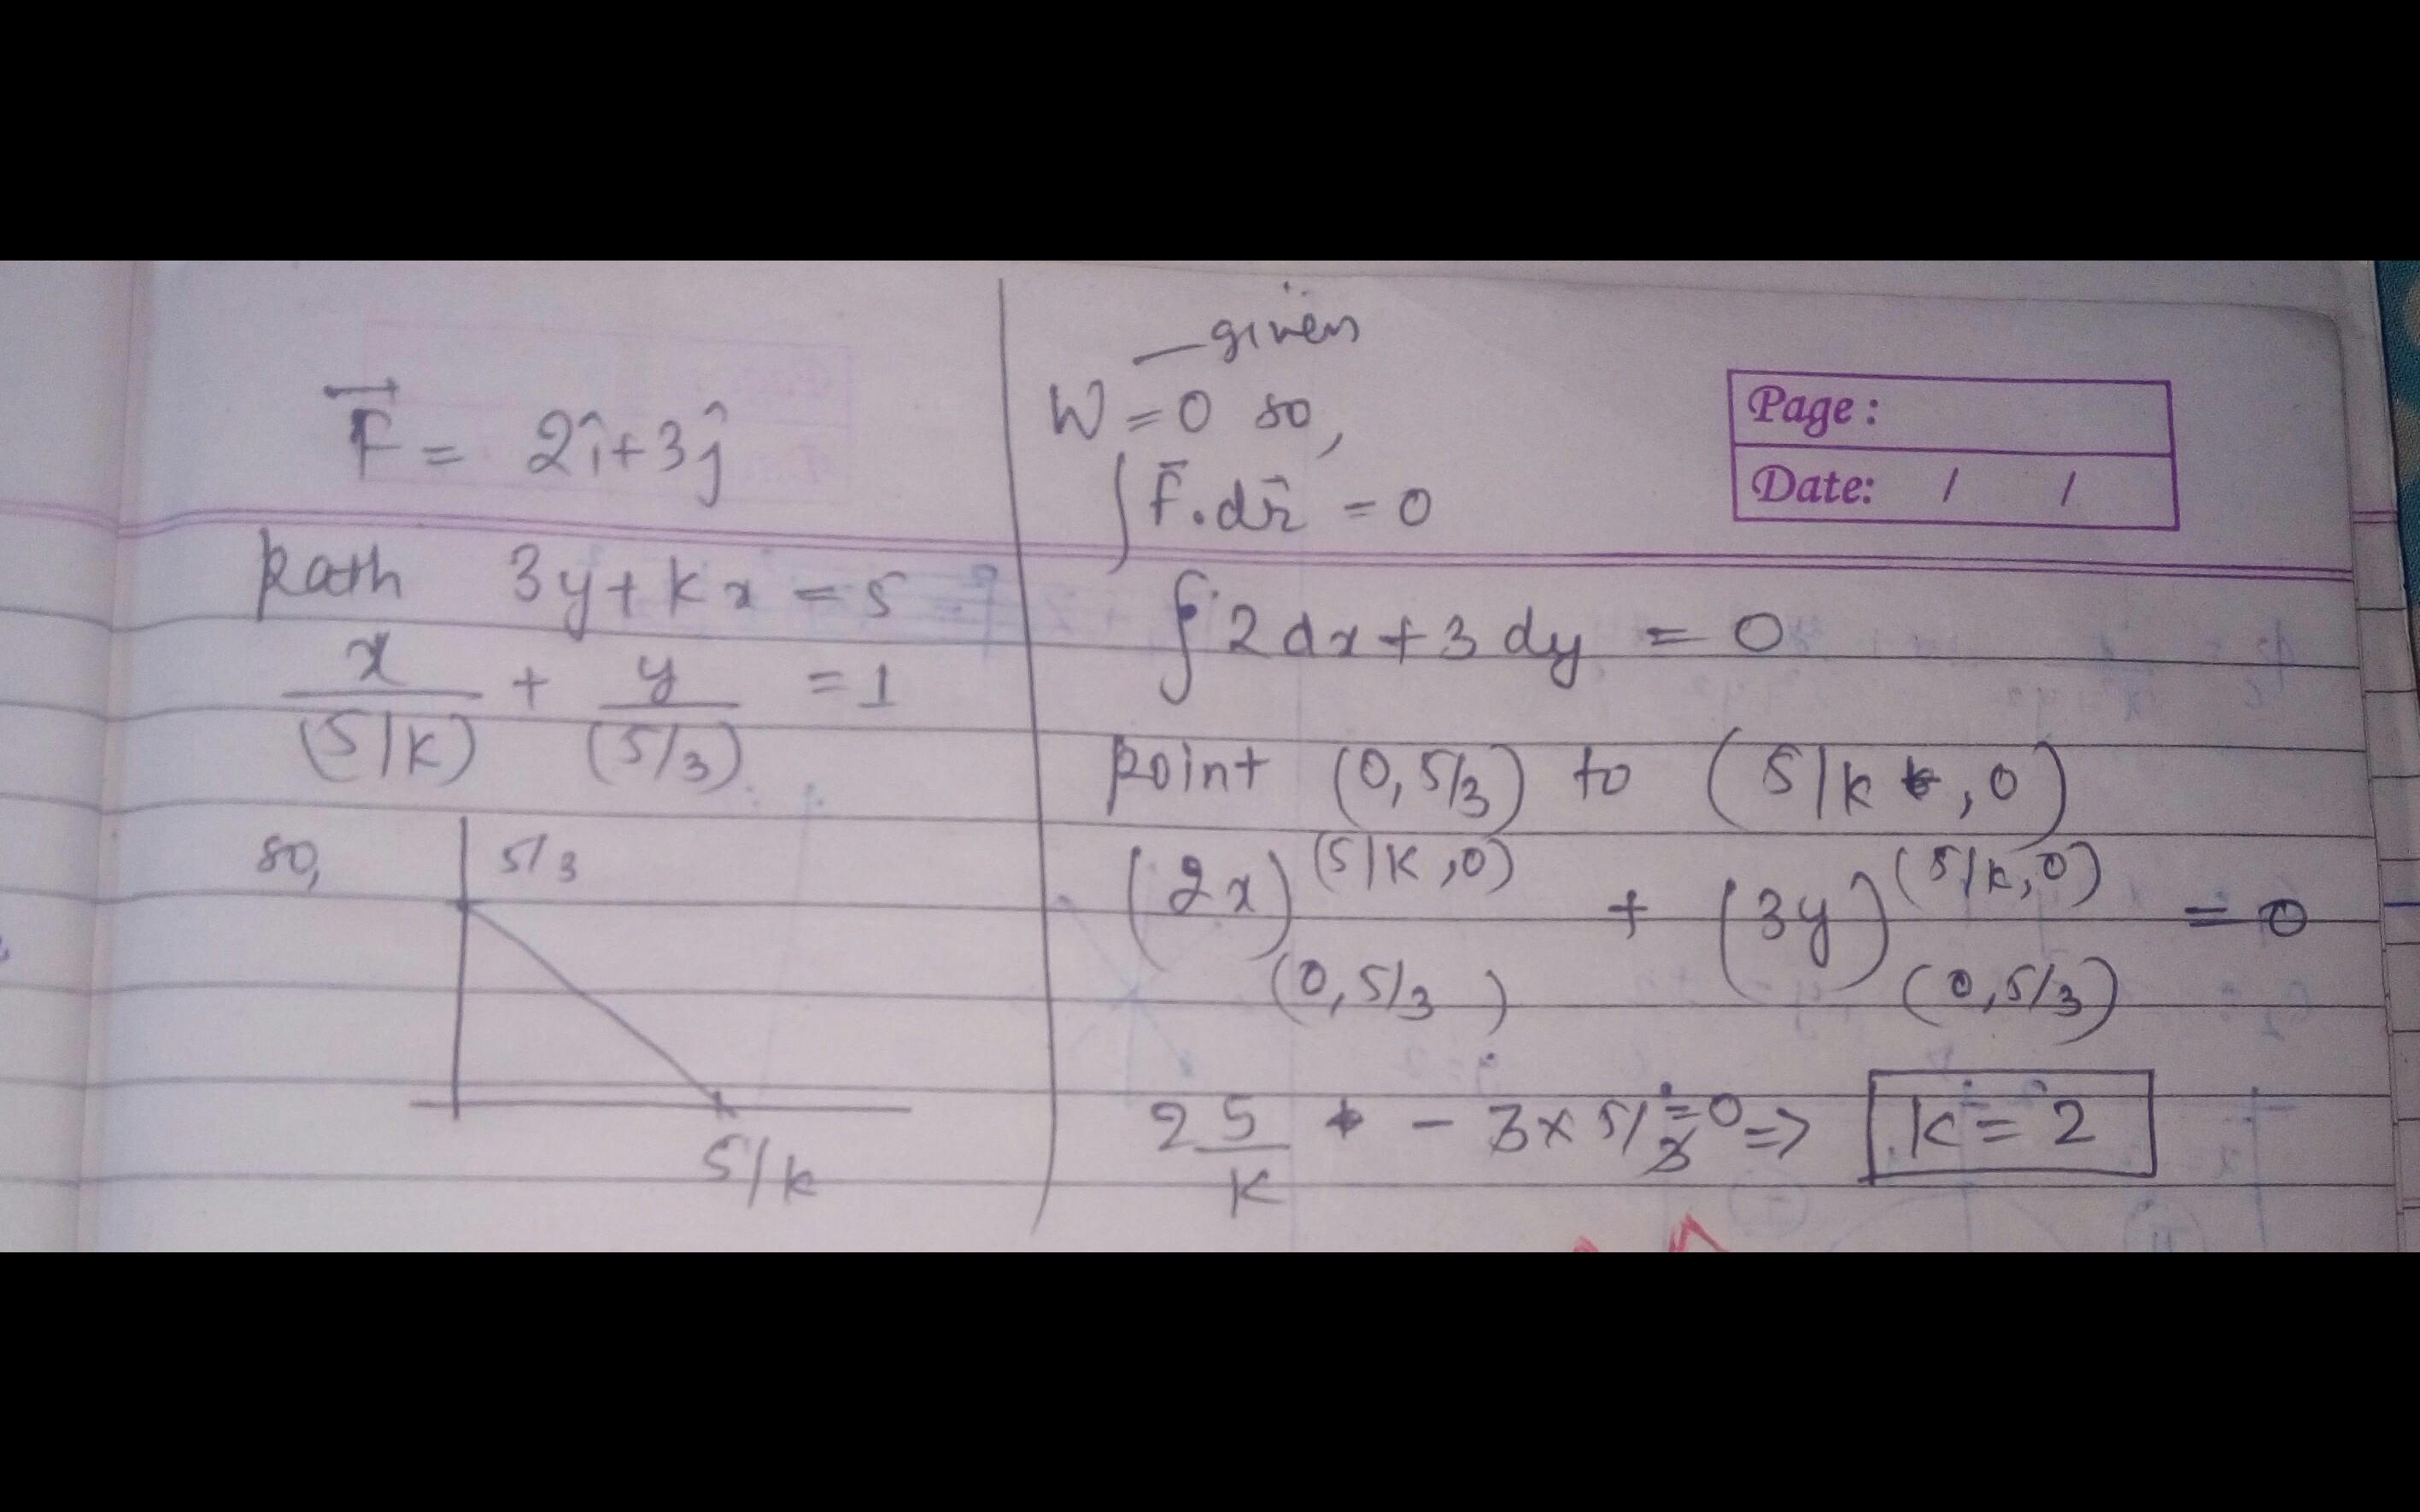 F⃗ = 2î+3ĵ
path 3y+kx = 5
x/(5/k) + y/(5/3) = 1
so, 5/3
5/k
— given
W = 0 so,
∫ F̄.dr̄ = 0
∮ 2dx+3dy = 0
point (0,5/3) to (5/k , 0)
(2x)^(5/k,0)_(0,5/3) + (3y)^(5/k,0)_(0,5/3) = 0
2 5/k - 3×5/3 = 0 => k = 2
Page :
Date: / /